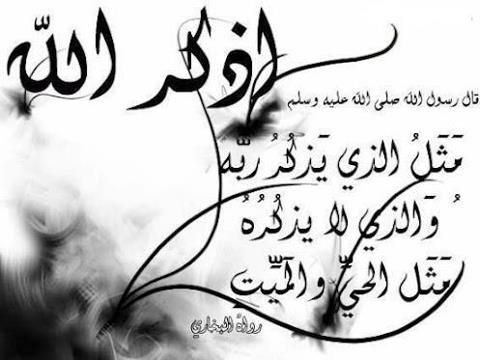 اذكر الله
قال رسول الله صلى الله عليه وسلم
مَثَلُ الذي يَذكُرُ ربَّهُ
وَالذي لا يذكُرُهُ
مَثَل الحيِّ والمَيِّتِ
رواه البخاري